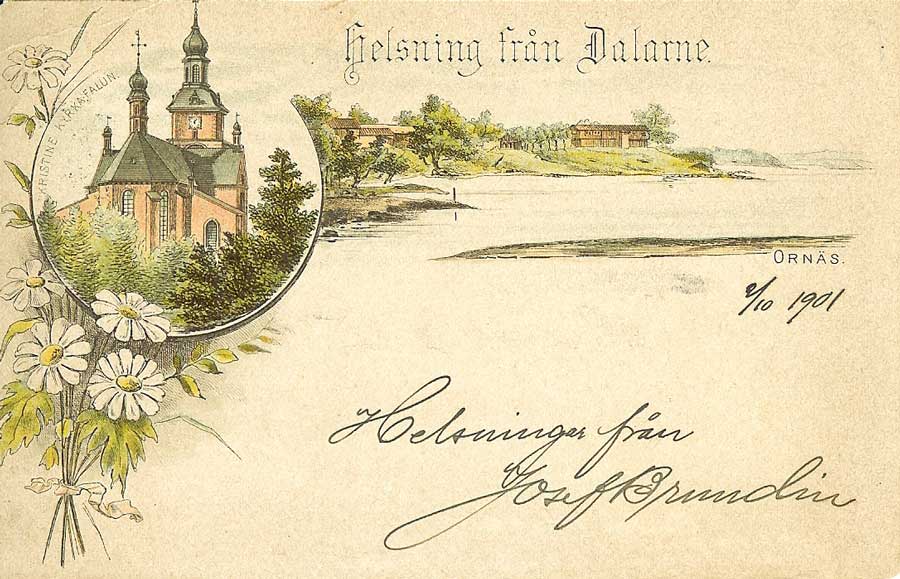 Helsning från Dalarne.
KRISTINE KYRKA, FALUN.
ORNÄS.
2/10 1901
Helsningar från
Josef Brundin